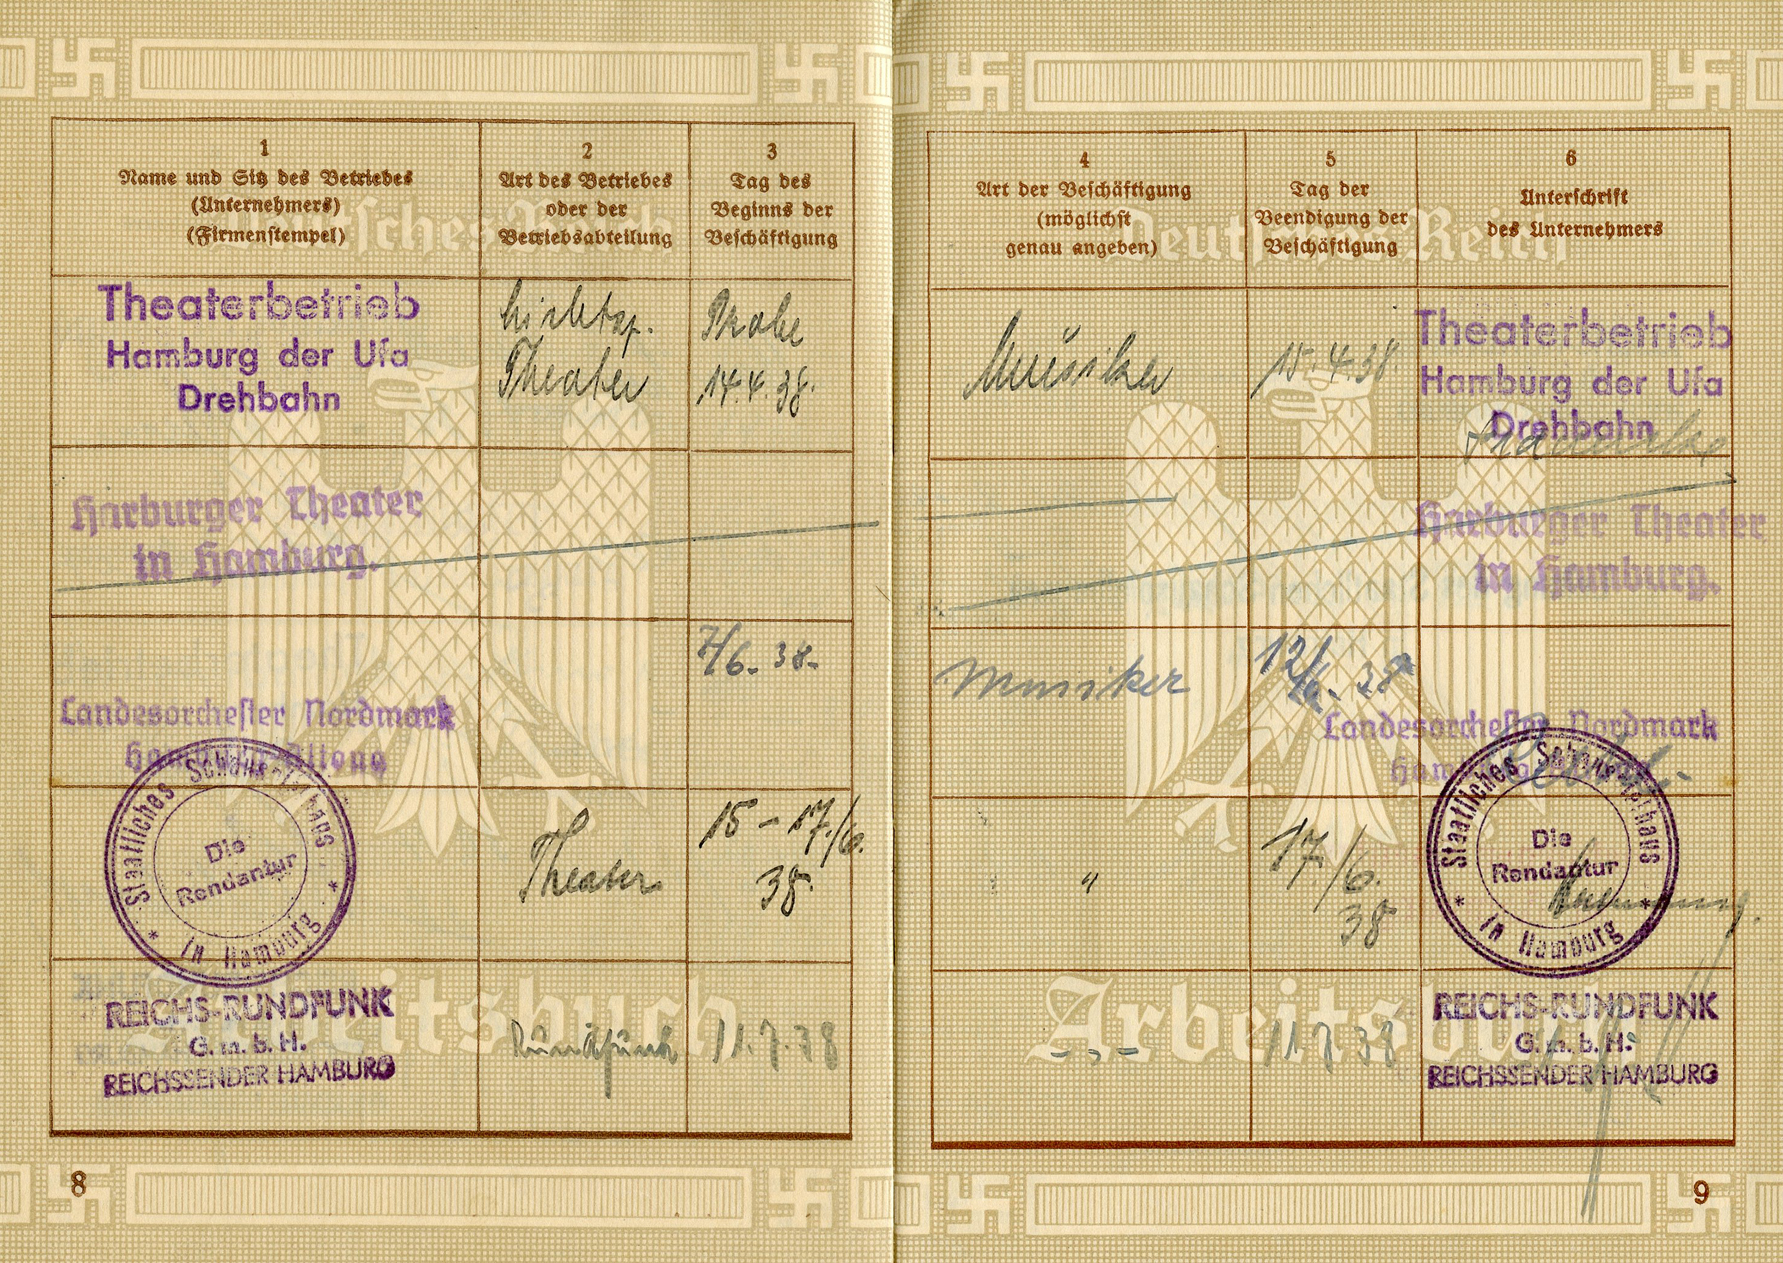 1
Name und Sitz des Betriebes
(Unternehmers)
(Firmenstempel)
2
Art des Betriebes
oder der
Betriebsabteilung
3
Tag des
Beginns der
Beschäftigung
Theaterbetrieb
Hamburg der Ufa
Drehbahn
Lichtsp.
Theater
Probe
14.4.38.
Harburger Theater
in Hamburg.
7/6. 38.
Landesorchester Nordmark
Hamburg-Altona
Staatliches Schauspielhaus
Die
Rendantur
* in Hamburg *
Theater
15 – 17./6.
38.
REICHS-RUNDFUNK
G.m.b.H.
REICHSSENDER HAMBURG
Rundfunk
11.7.38
8
Deutsches Reich
Arbeitsbuch
4
Art der Beschäftigung
(möglichst
genau angeben)
5
Tag der
Beendigung der
Beschäftigung
6
Unterschrift
des Unternehmers
Musiker
15.4.38.
Theaterbetrieb
Hamburg der Ufa
Drehbahn
Harburger Theater
in Hamburg.
Musiker
12/6. 38
Landesorchester Nordmark
"
17/6.
38
Staatliches Schauspielhaus
Die
Rendantur
* in Hamburg *
- " -
11.7.38
REICHS-RUNDFUNK
G.m.b.H.
REICHSSENDER HAMBURG
9
Deutsches Reich
Arbeitsbuch